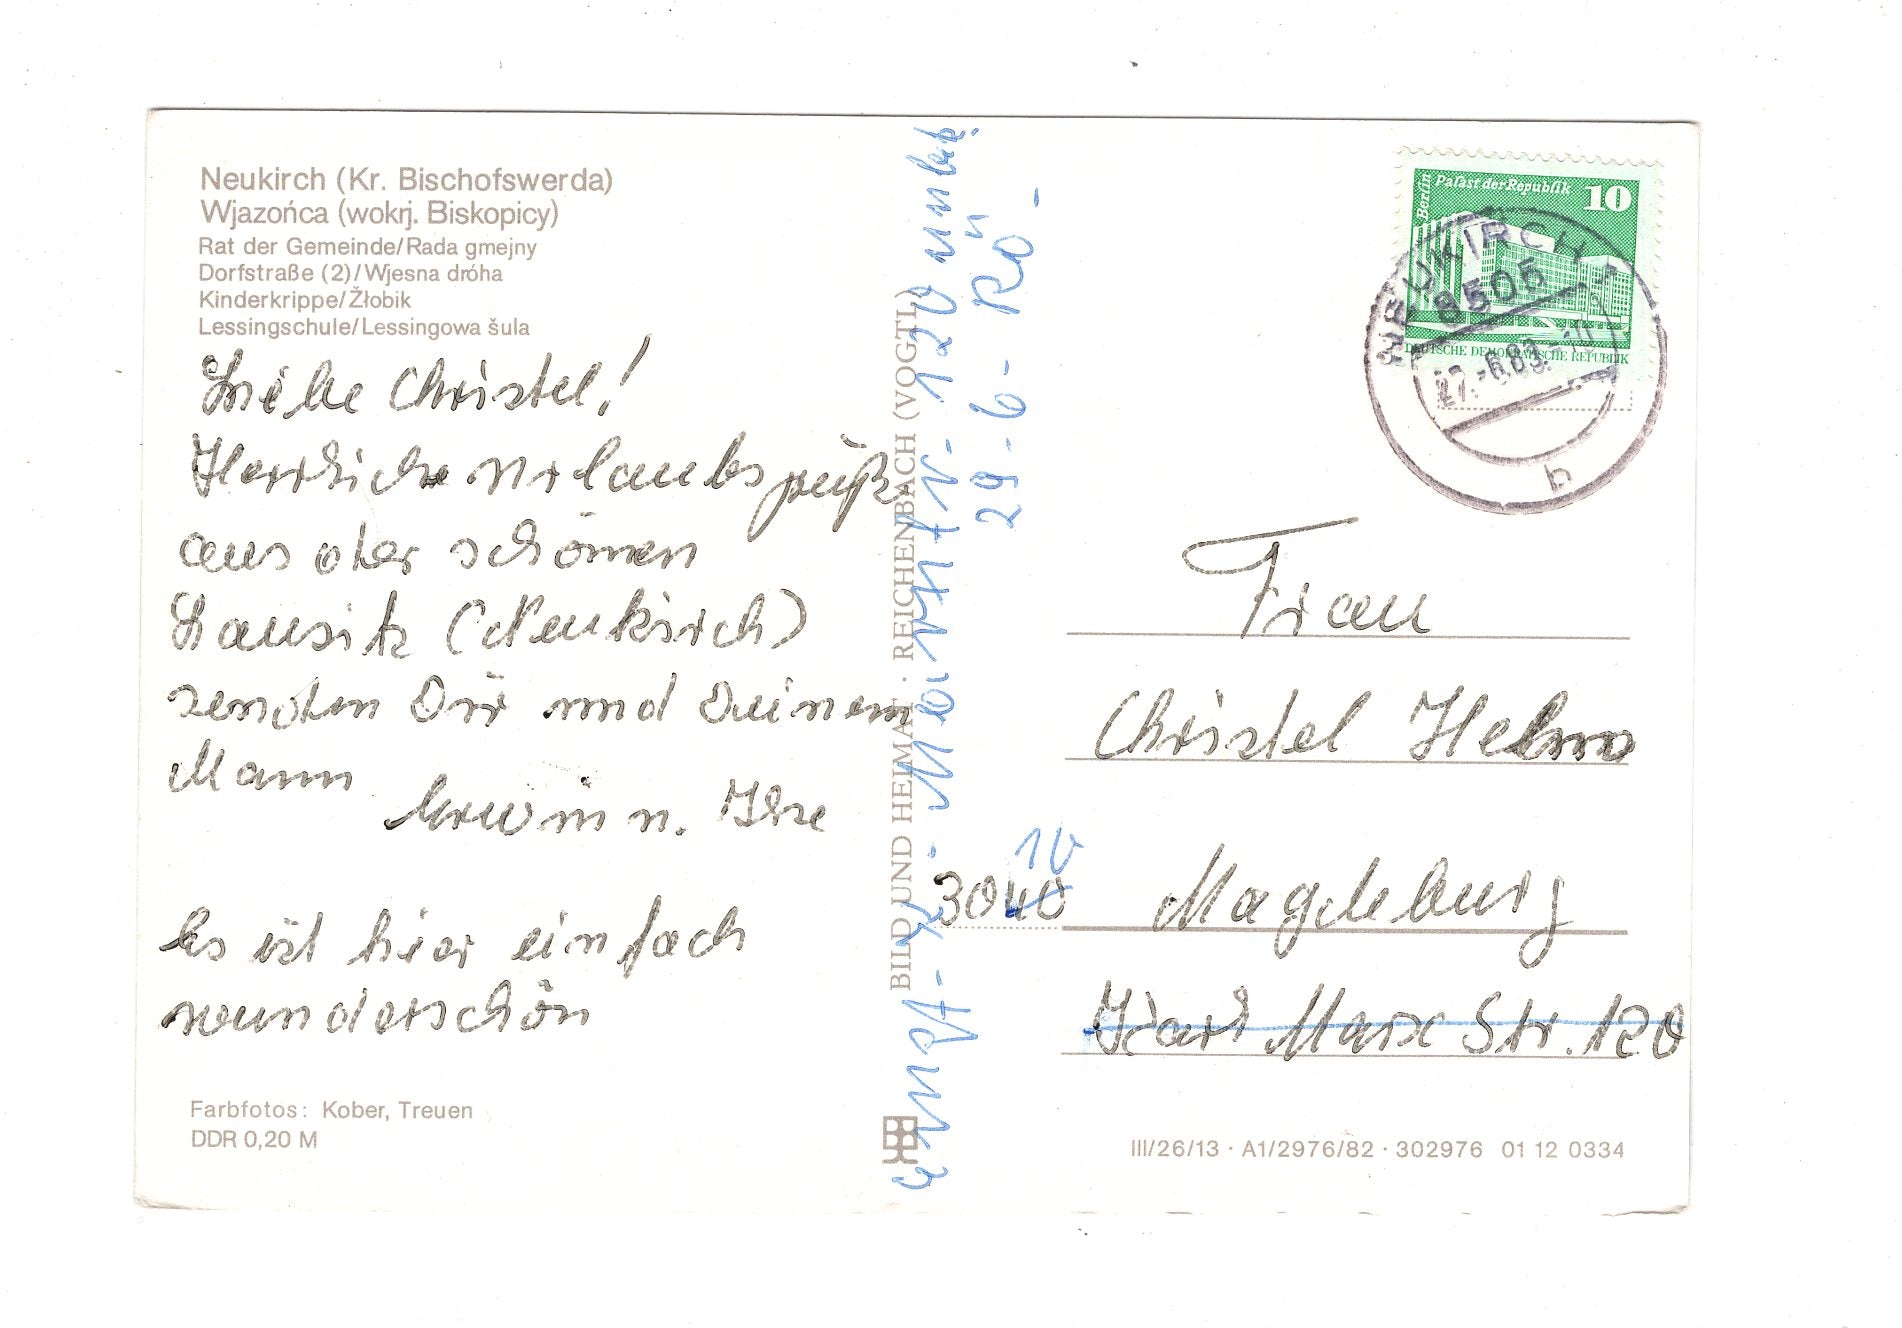 Neukirch (Kr. Bischofswerda)
Wjazońca (wokrj. Biskopicy)
Rat der Gemeinde/Rada gmejny
Dorfstraße (2)/Wjesna dróha
Kinderkrippe/Žłobik
Lessingschule/Lessingowa šula
Liebe Christel!
Herzliche Urlaubsgrüße
aus der schönen
Lausitz (Neukirch)
senden Dir und Deinem
Mann
Erwin u. Ilse
Es ist hier einfach
wunderschön
Farbfotos: Kober, Treuen
DDR 0,20 M
BILD UND HEIMAT · REICHENBACH (VOGTL)
120 unbek.
29-6- Rö-
Berlin
Palast der Republik
10
DEUTSCHE DEMOKRATISCHE REPUBLIK
NEUKIRCH
8505
27.-6.83.-10
b
Frau
Christel Helm
10
3040 Magdeburg
Karl Marx Str. 120
III/26/13 · A1/2976/82 · 302976 01 12 0334